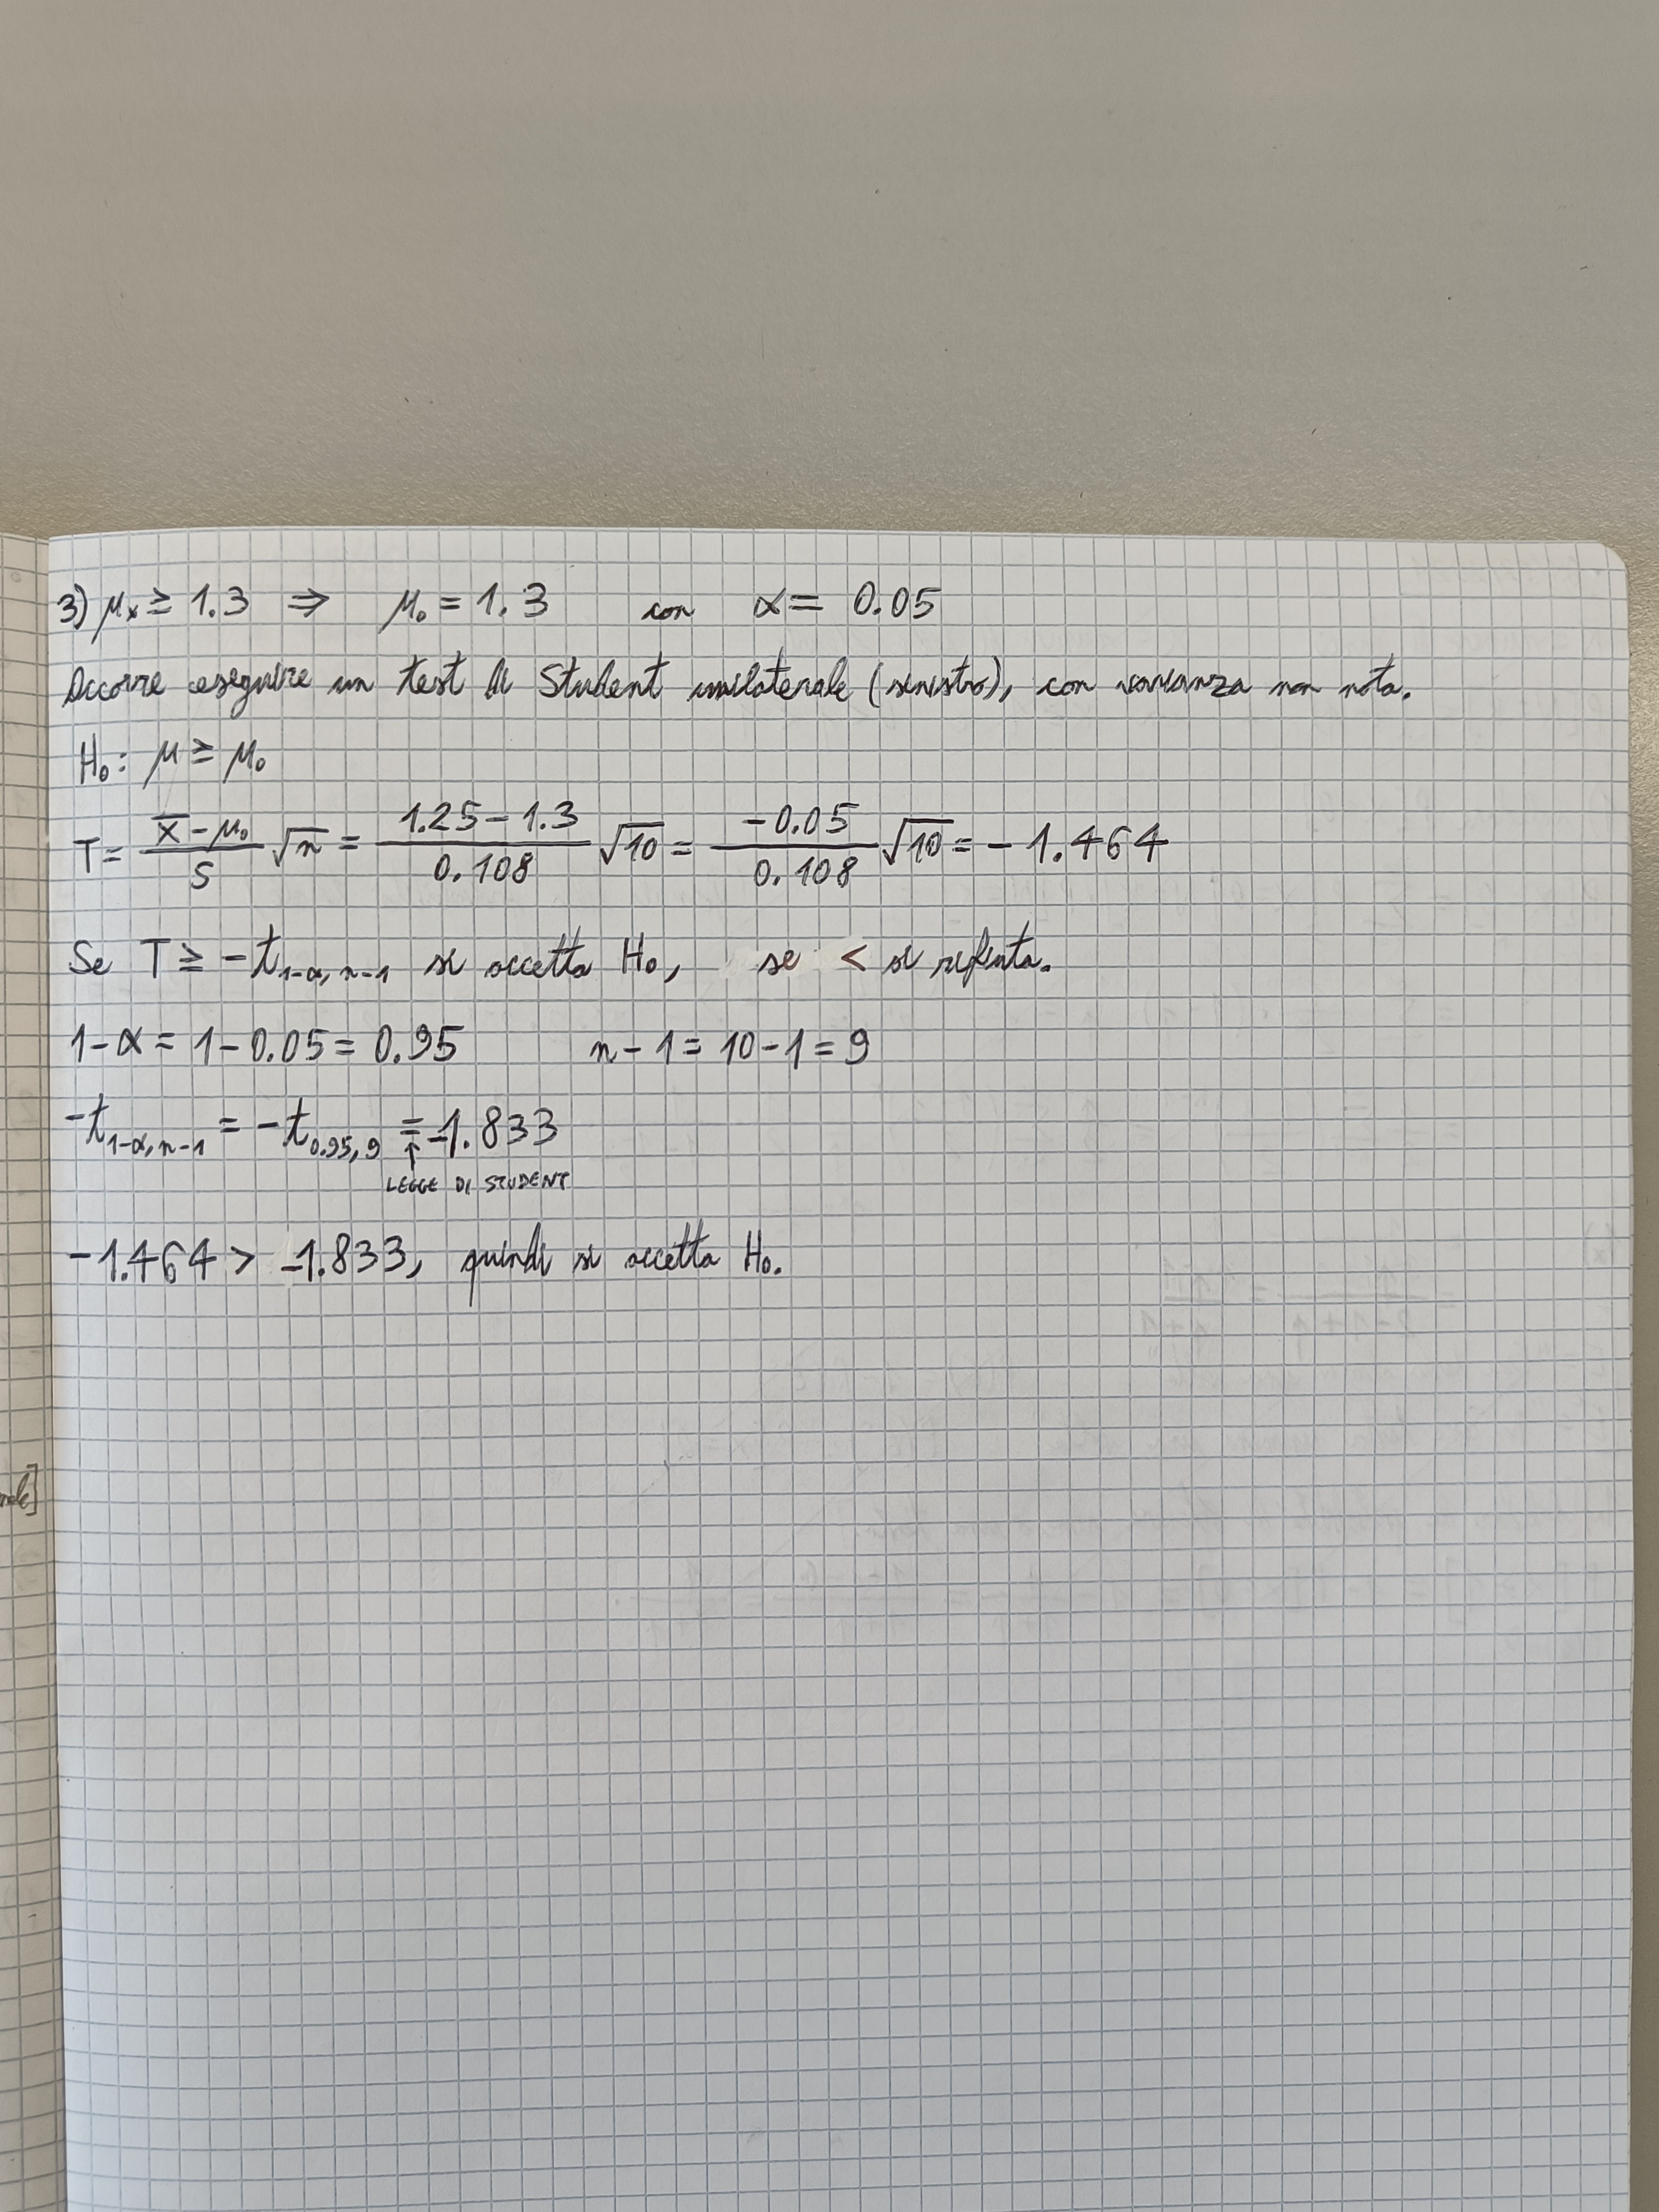 3) μₓ ≥ 1.3 ⇒ μ₀ = 1.3 con α = 0.05
Occorre eseguire un test di Student unilaterale (sinistro), con varianza non nota.
H₀: μ ≥ μ₀
T = (x̄ - μ₀)/S √n = (1.25 - 1.3)/0.108 √10 = (-0.05)/0.108 √10 = -1.464
Se T ≥ -t₁₋α,ₙ₋₁ si accetta H₀, se < si rifiuta.
1-α = 1-0.05 = 0.95 n-1 = 10-1 = 9
-t₁₋α,ₙ₋₁ = -t₀.₉₅,₉ = -1.833
↑
LEGGE DI STUDENT
-1.464 > -1.833, quindi si accetta H₀.